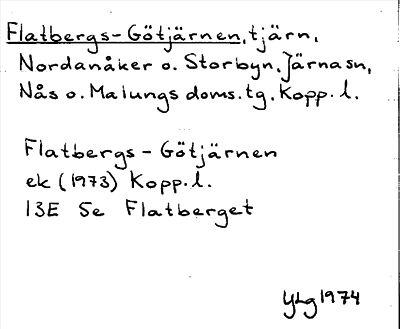 Flatbergs-Götjärnen, tjärn,
Nordanåker o. Storbyn, Järnasn,
Nås o. Malungs doms.tg, Kopp. l.
Flatbergs-Götjärnen
ek (1973) Kopp. l.
13E 5e Flatberget
YLg 1974